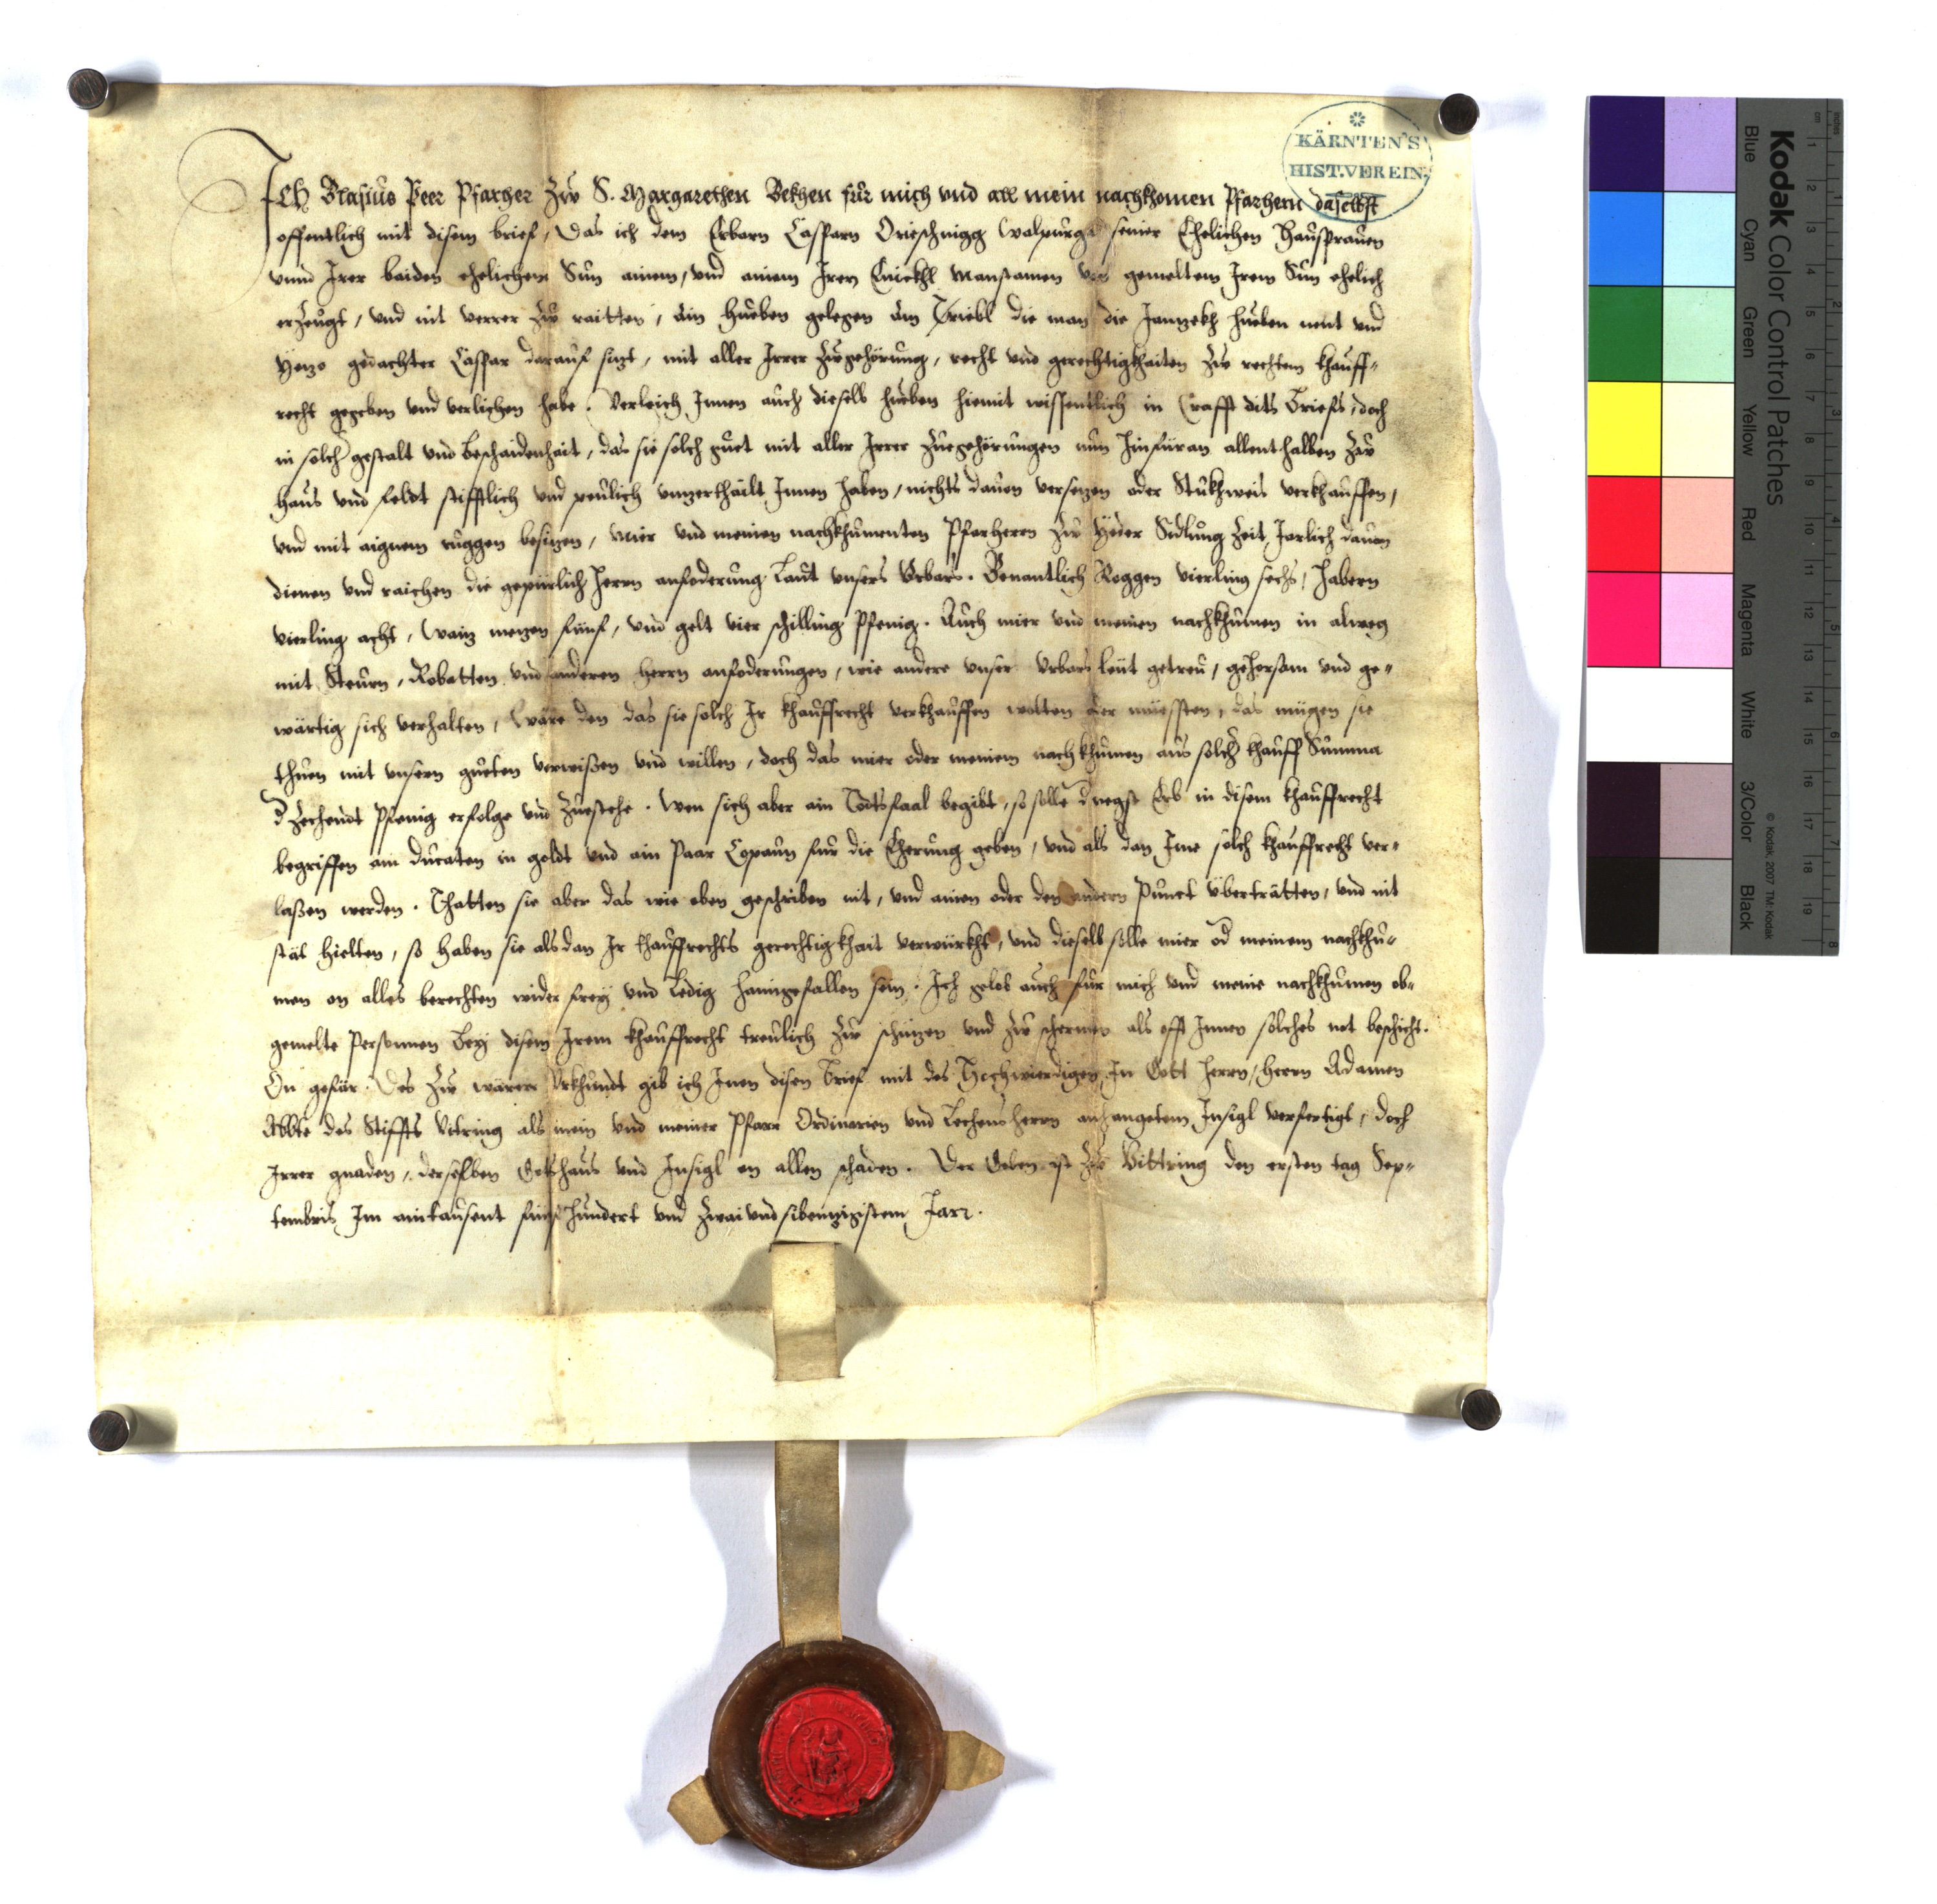 KÄRNTEN'S
HIST. VEREIN.
Ich Blasius Peer Pfarher zw S. Margarethen Bekhen für mich vnd all mein nachkhomen Pfarhern daselbst
offentlich mit disem brief, Das ich dem Erbarn Casparn Walpurga seiner Ehelichen Hausfrauen
vnnd Irer baiden ehelichem Sun ainem, vnd ainem Iren Enickhl Manstamen von gemeltem Irem Sun ehelich
erzeugt, vnd nit verrer zw raitten, ain hueben gelegen am die man die hueben nent vnd
yezo gedachter Caspar darauf sizt, mit aller Irrer zwgehörung, recht vnd gerechtigkhaiten zw rechtem khauff-
recht gegeben vnd verlichen habe. Verleich Innen auch dieselb hueben hiemit wissentlich in Crafft dits Briefs, doch
in solcher gestalt vnd beschaidenhait, das sie solch guet mit aller Irrer zuegehörungen nun hinfüran allenthalben zw
haus vnd feldt stifftlich vnd peulich vnzerthailt Innen haben, nichts dauon versezen oder Stukhweis verkhauffen,
vnd mit aignem ruggen besizen, mier vnd meinen nachkhumenten Pfarherrn zw Yeder Stifftung Zeit Jarlich dauon
dienen vnd raichen die gepürlich herrn anfoderung Laut vnsers Vrbars. Benantlich Roggen vierling sechs, habern
vierling acht, waiz mezen fünf, vnd gelt vier schilling Pfenig. Auch mier vnd meinen nachkhumen in alweg
mit Steurn, Robatten vnd anderen herrn anfoderungen, wie andere vnser vrbars leüt getreu, gehorsam vnd ge-
wärtig sich verhalten, Wäre den das sie solch Ir khauffrecht verkhauffen wolten oder müessten, das mügen sie
thuen mit vnsern gueten verwißen vnd willen, doch das mier oder meinem nachkhumen aus solcher khauff Summa
der Zechendt Pfenig erfolge vnd zuestehe. Wen sich aber ain Todtsfaal begibt, so solle der negst Erb in disem khauffrecht
begriffen ain ducaten in goldt vnd ain Paar Copaun für die Eherung geben, vnd als dan Ime solch khauffrecht ver-
laßen werden. Thatten sie aber das wie oben geschriben nit, vnd ainen oder den andern Punct überträtten, vnd nit
stät hielten, so haben sie alsdan Ir khauffrechts gerechtigkhait verwürkht, vnd dieselb solle mier oder meinem nachkhu-
men on alles berechten wider frey vnd Ledig haimgefallen sein. Ich gelob auch für mich vnd meine nachkhumen ob-
gemelte Personnen Bey disem Irem khauffrecht treulich zw schüzen vnd zw schermen als offt Innen solches not beschicht.
On gefär. Des zw warerr Vrkhundt gib ich Inen disen Brief mit des Hochwierdigen In Gott Herrn, herrn Adamen
Abbte des Stiffts Vitring als mein vnd meiner Pfarr Ordinarien vnd Lechensherrn anhangetem Insigl verfertigt, doch
Irrer gnaden, derselben Gotshaus vnd Insigl on allen schaden. Der Geben ist zw Vittring den ersten tag Sep-
tembris Im aintausent fünfhundert vnd zwaivndsibenzigistem Jarr.
Kodak Color Control Patches
© Kodak, 2007 TM: Kodak
Blue
Cyan
Green
Yellow
Red
Magenta
White
3/Color
Black
cm
1
2
3
4
5
6
7
8
9
10
11
12
13
14
15
16
17
18
19
inches
1
2
3
4
5
6
7
8